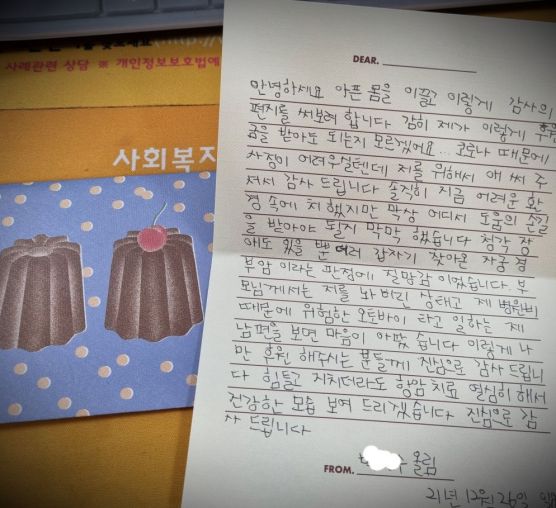 사례관련 상담 ※ 개인정보보호법에
사회복지
DEAR.
안녕하세요 아픈 몸을 이끌고 이렇게 감사의
편지를 써보려 합니다 감히 제가 이렇게 후원
금을 받아도 되는지 모르겠어요... 코로나 때문에
사정이 어려우실텐데 저를 위해서 애 써 주
셔서 감사 드립니다 솔직히 지금 어려운 환
경 속에 처했지만 막상 어디서 도움의 손길
을 받아야 될지 막막 했습니다 청각 장
애도 있을 뿐더러 갑자기 찾아온 자궁 경
부암 이라는 판정에 절망감 이었습니다. 부
모님께서는 저를 놔 버린 상태고 제 병원비
때문에 위험한 오토바이 타고 일하는 제
남편을 보면 마음이 아팠 습니다 이렇게 나
만 후원 해주시는 분들께 진심으로 감사 드립니
다 힘들고 지치더라도 항암 치료 열심히 해서
건강한 모습 보여 드리겠습니다 진심으로 감
사 드립니다
FROM. 올림
21년 12월 26일